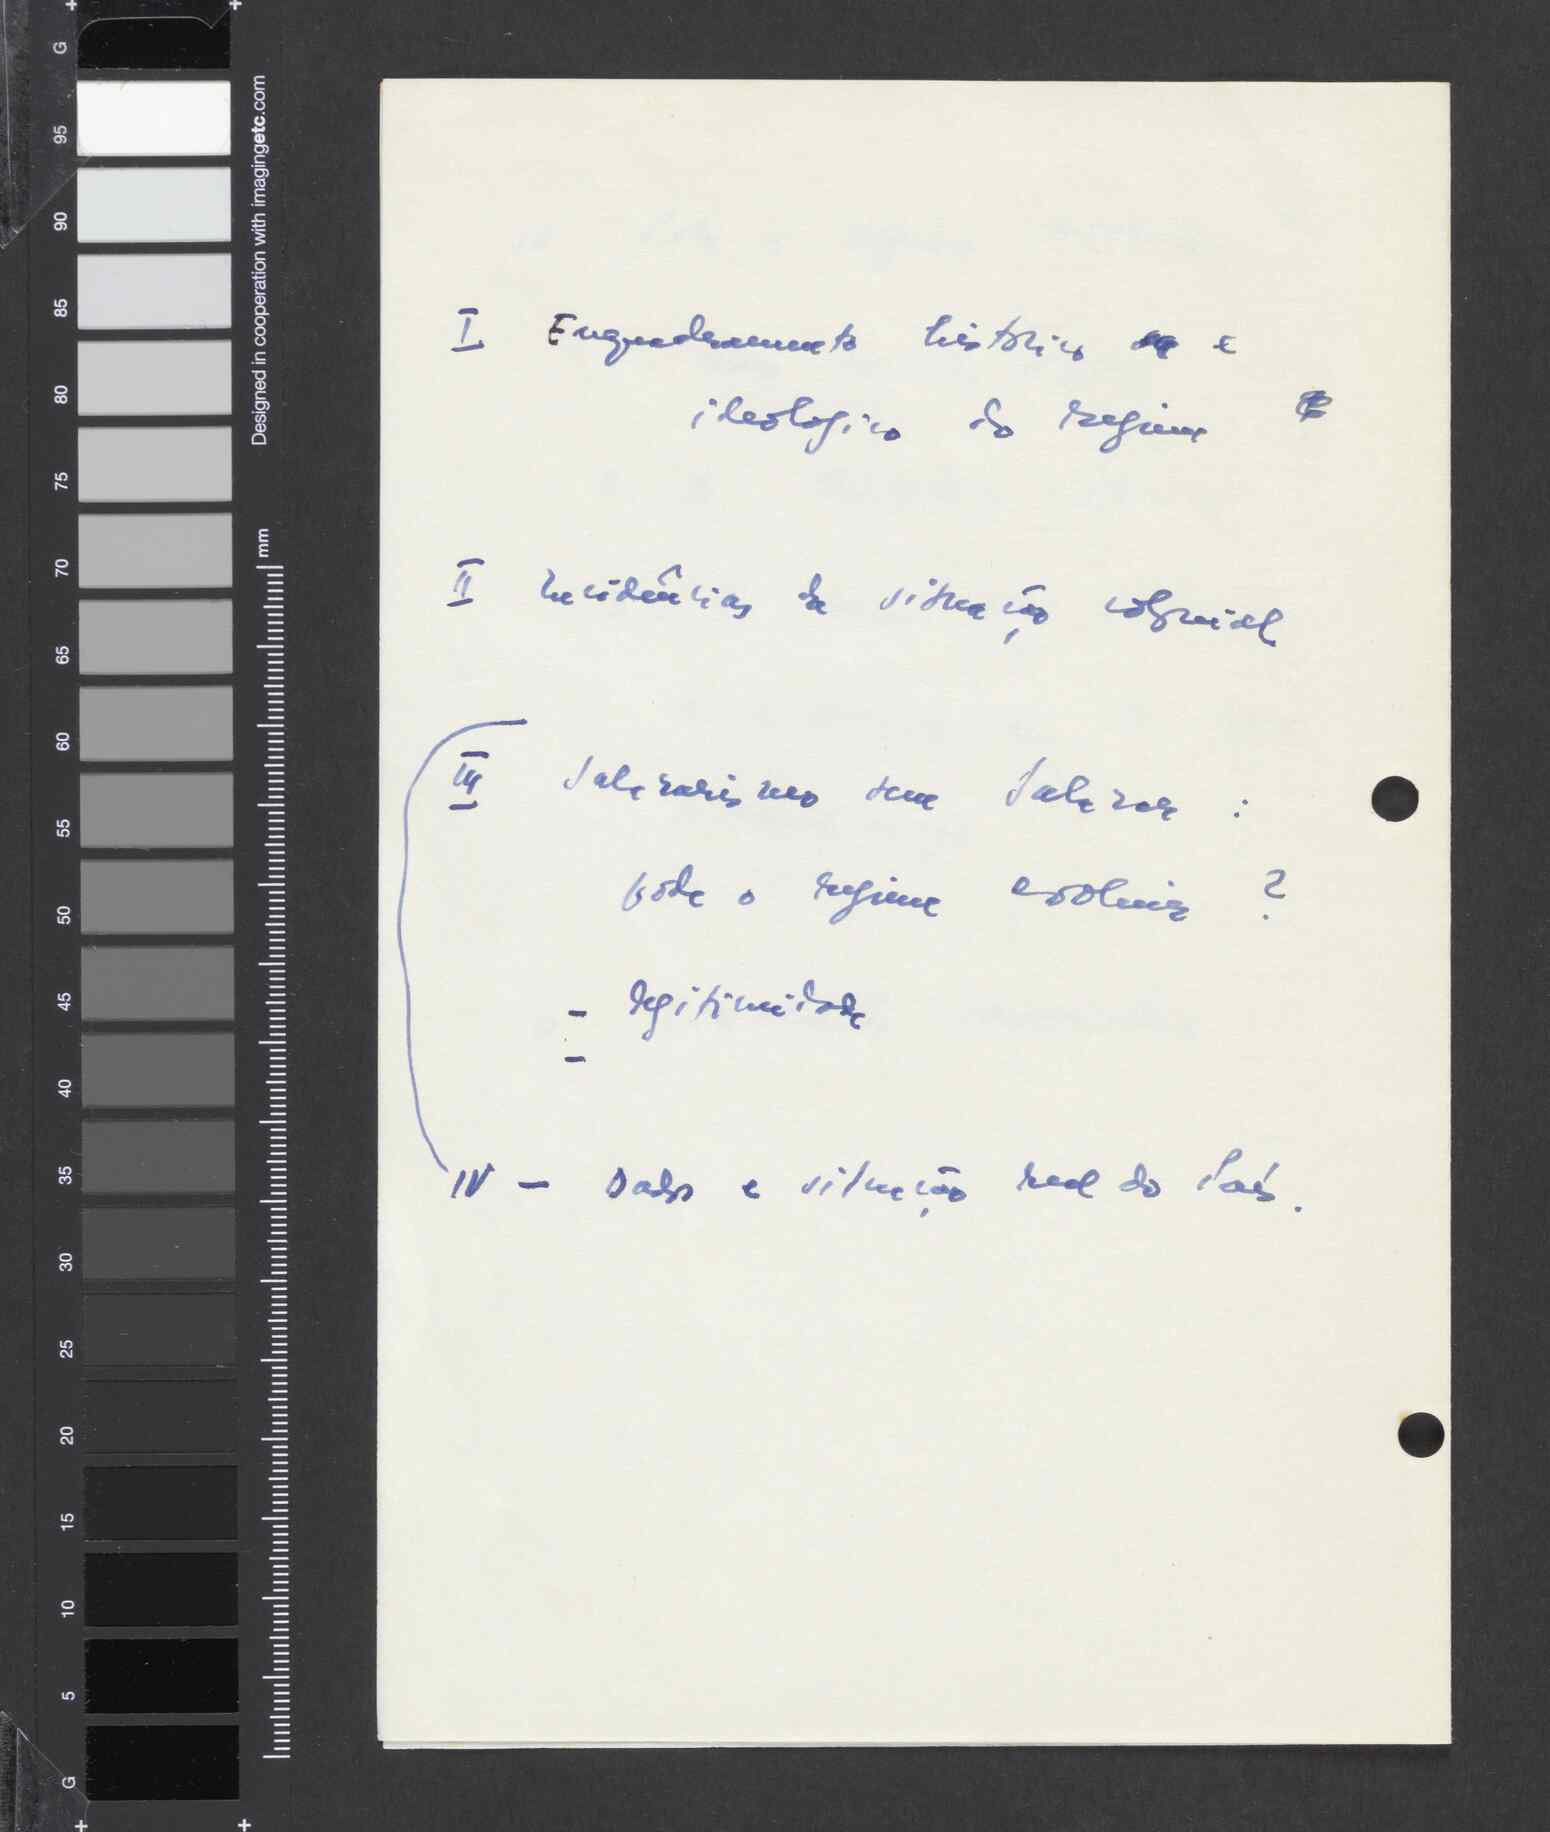 I Enquadramento histórico e
ideologico do regime
II Incidências da situação colonial
III Salazarismo sem Salazar :
pode o regime evoluir ?
- legitimidade
-
IV - Dados e situação real do País.
G
95
90
85
80
75
70
65
60
55
50
45
40
35
30
25
20
15
10
5
G
Designed in cooperation with imagingetc.com
mm